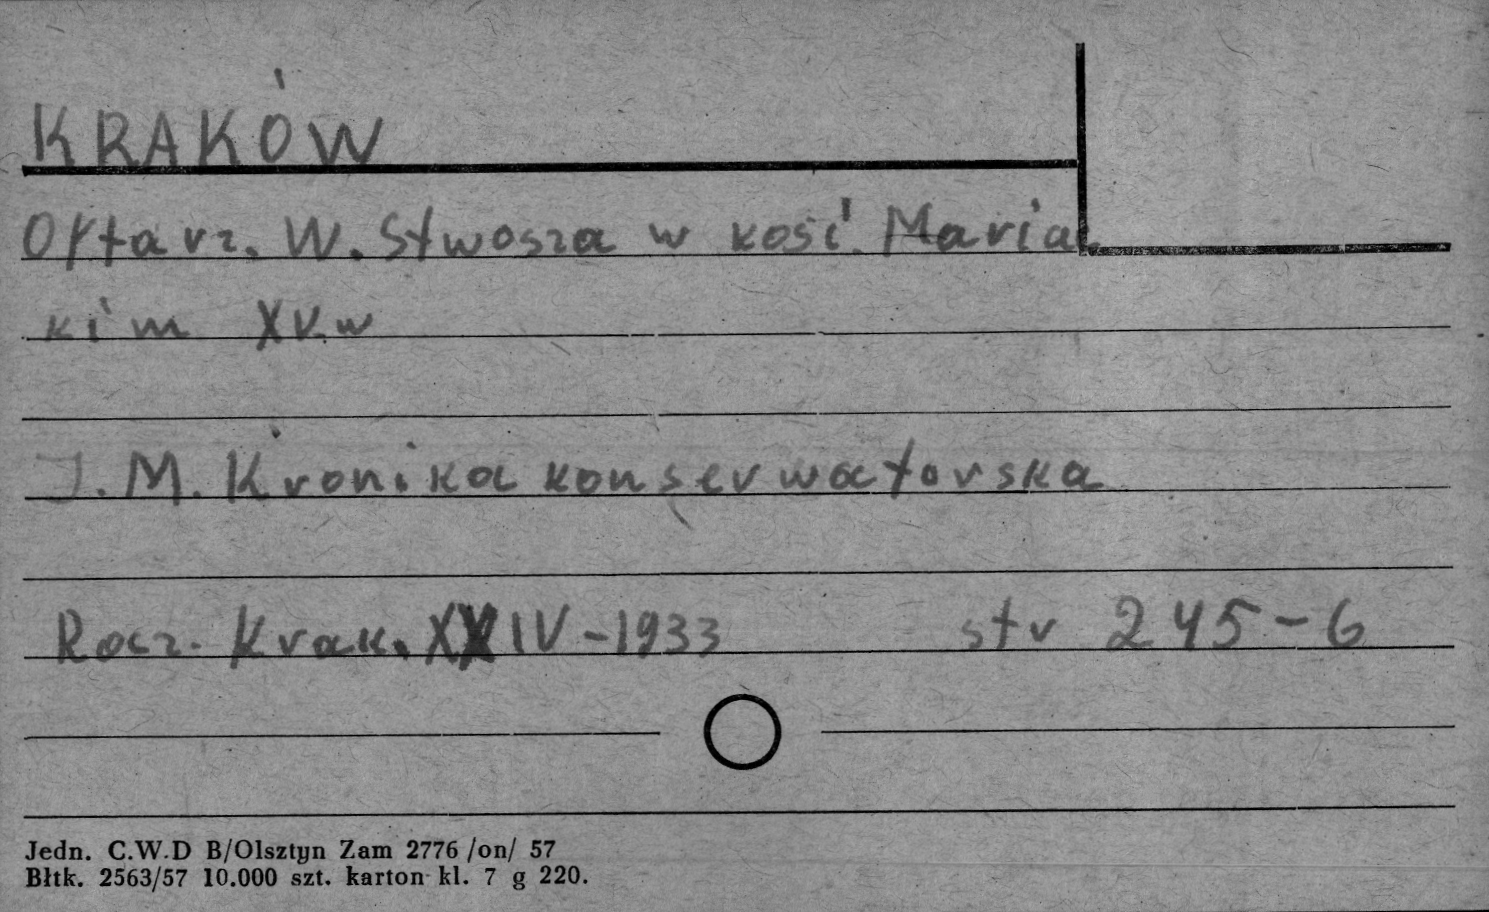 KRAKÓW
Ołtarz. W. Stwosza w kość. Maria
kim XV.w
J. M. Kronika konserwatorska
Rocz. Krak. XXIV-1933 str 245-6
Jedn. C.W.D B/Olsztyn Zam 2776 /on/ 57
Błtk. 2563/57 10.000 szt. karton kl. 7 g 220.